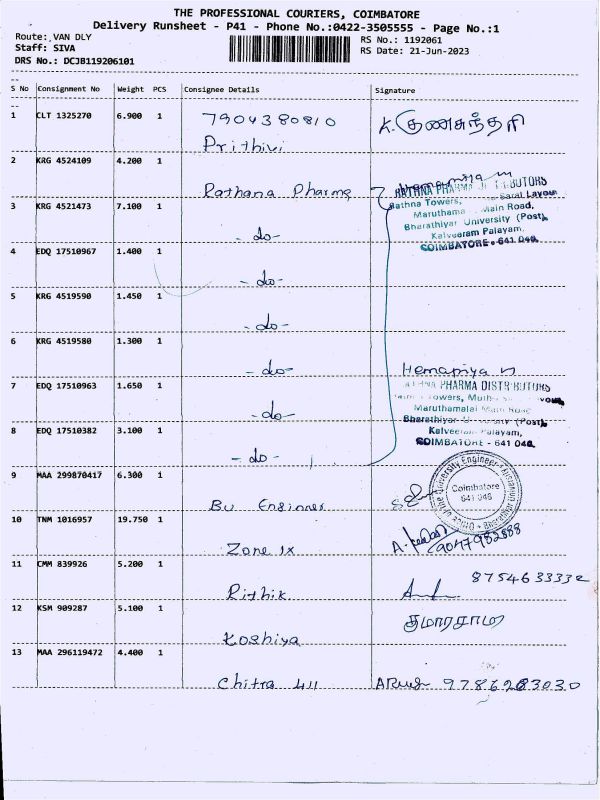 THE PROFESSIONAL COURIERS, COIMBATORE
Delivery Runsheet - P41 - Phone No.:0422-3505555 - Page No.:1
Route: VAN DLY
RS No.: 1192061
Staff: SIVA
RS Date: 21-Jun-2023
DRS No.: DCJB119206101
S No Consignment No Weight PCS Consignee Details Signature
1 CLT 1325270 6.900 1 7904380810 K. குணசுந்தரி
Prithivi
2 KRG 4524109 4.200 1
Rathana Pharma Hemapriya n
RATHNA PHARMA DISTRIBUTORS
3 KRG 4521473 7.100 1 Rathna Towers, Saral Layout
Maruthama Main Road,
- do - Bharathiyar University (Post),
Kalveeram Palayam,
4 EDQ 17510967 1.400 1 COIMBATORE - 641 046.
- do -
5 KRG 4519590 1.450 1
- do -
6 KRG 4519580 1.300 1
- do - Hemapriya n
7 EDQ 17510963 1.650 1 RATHNA PHARMA DISTRIBUTORS
Towers,
Maruthamalai Main Road
- do - Bharathiyar University (Post),
8 EDQ 17510382 3.100 1 Kalveeram Palayam,
COIMBATORE - 641 046.
- do -
9 MAA 299870417 6.300 1 Office of the University Engineer • Bharathiar University •
Coimbatore
641 046
Bu Enginner
10 TNM 1016957 19.750 1
Zone 1x 9047982888
11 CMM 839926 5.200 1 8754633332
Rithik
12 KSM 909287 5.100 1 குமாரசாமி
Koshiya
13 MAA 296119472 4.400 1
Chitra 4u 9786283030